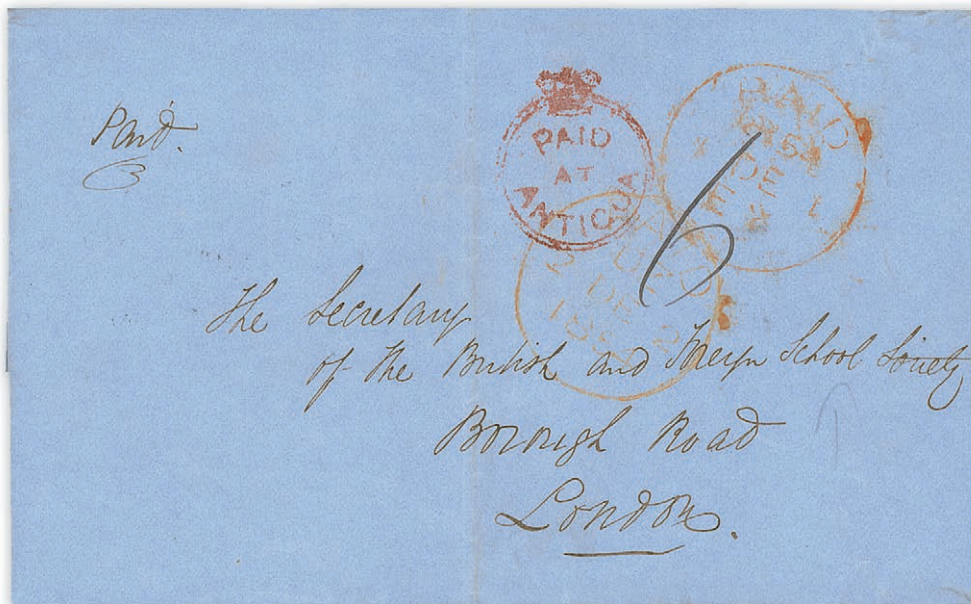 Paid.
PAID
AT
ANTIGUA
PAID
6
The Secretary
of the British and Foreign School Society
Borough Road
London.